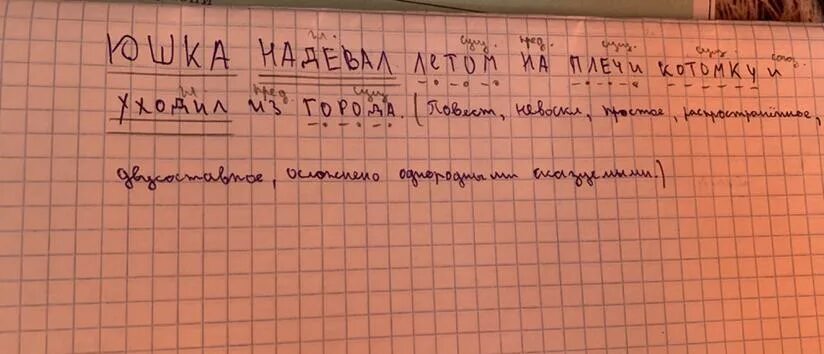 гл. сущ. пред. сущ. сущ. союз.
ЮШКА НАДЕВАЛ ЛЕТОМ НА ПЛЕЧИ КОТОМКУ И
гл пред. сущ.
УХОДИЛ ИЗ ГОРОДА. (Повест, невоскл, простое, распространённое,
двусоставное, осложнено однородными сказуемыми.)